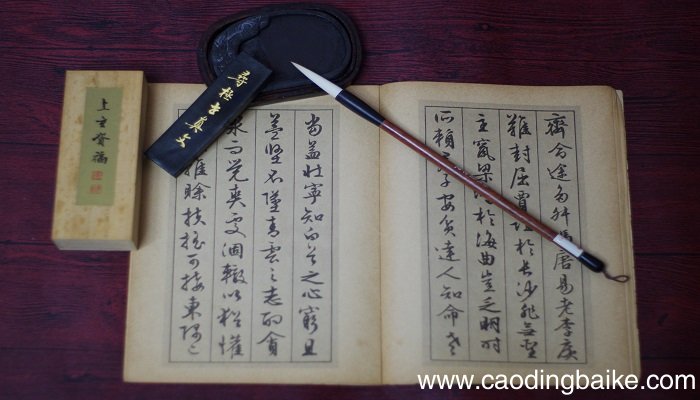 齊命途多舛馮唐易老李廣
難封屈賈誼於長沙非無聖
主竄梁於海曲豈乏明時
所賴子安貧達人知命老
當益壯寧知白首之心窮且
益堅不墜青雲之志酌貪
泉而覺爽處涸轍以猶懽
雖賒扶搖可接東隅已
www.caodingbaike.com